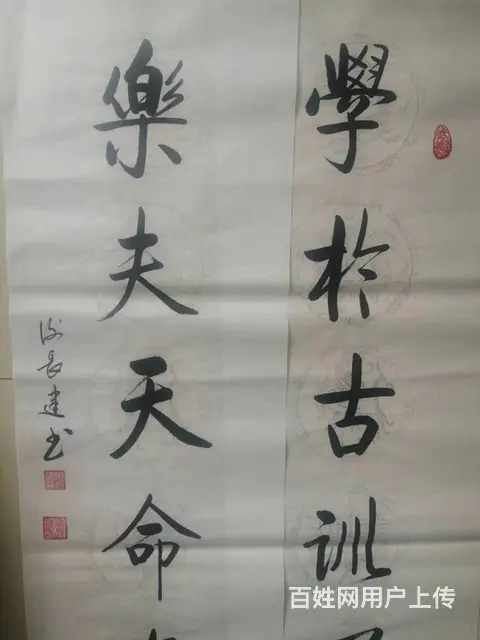 學於古訓
樂夫天命
謝長建书
百姓网用户上传